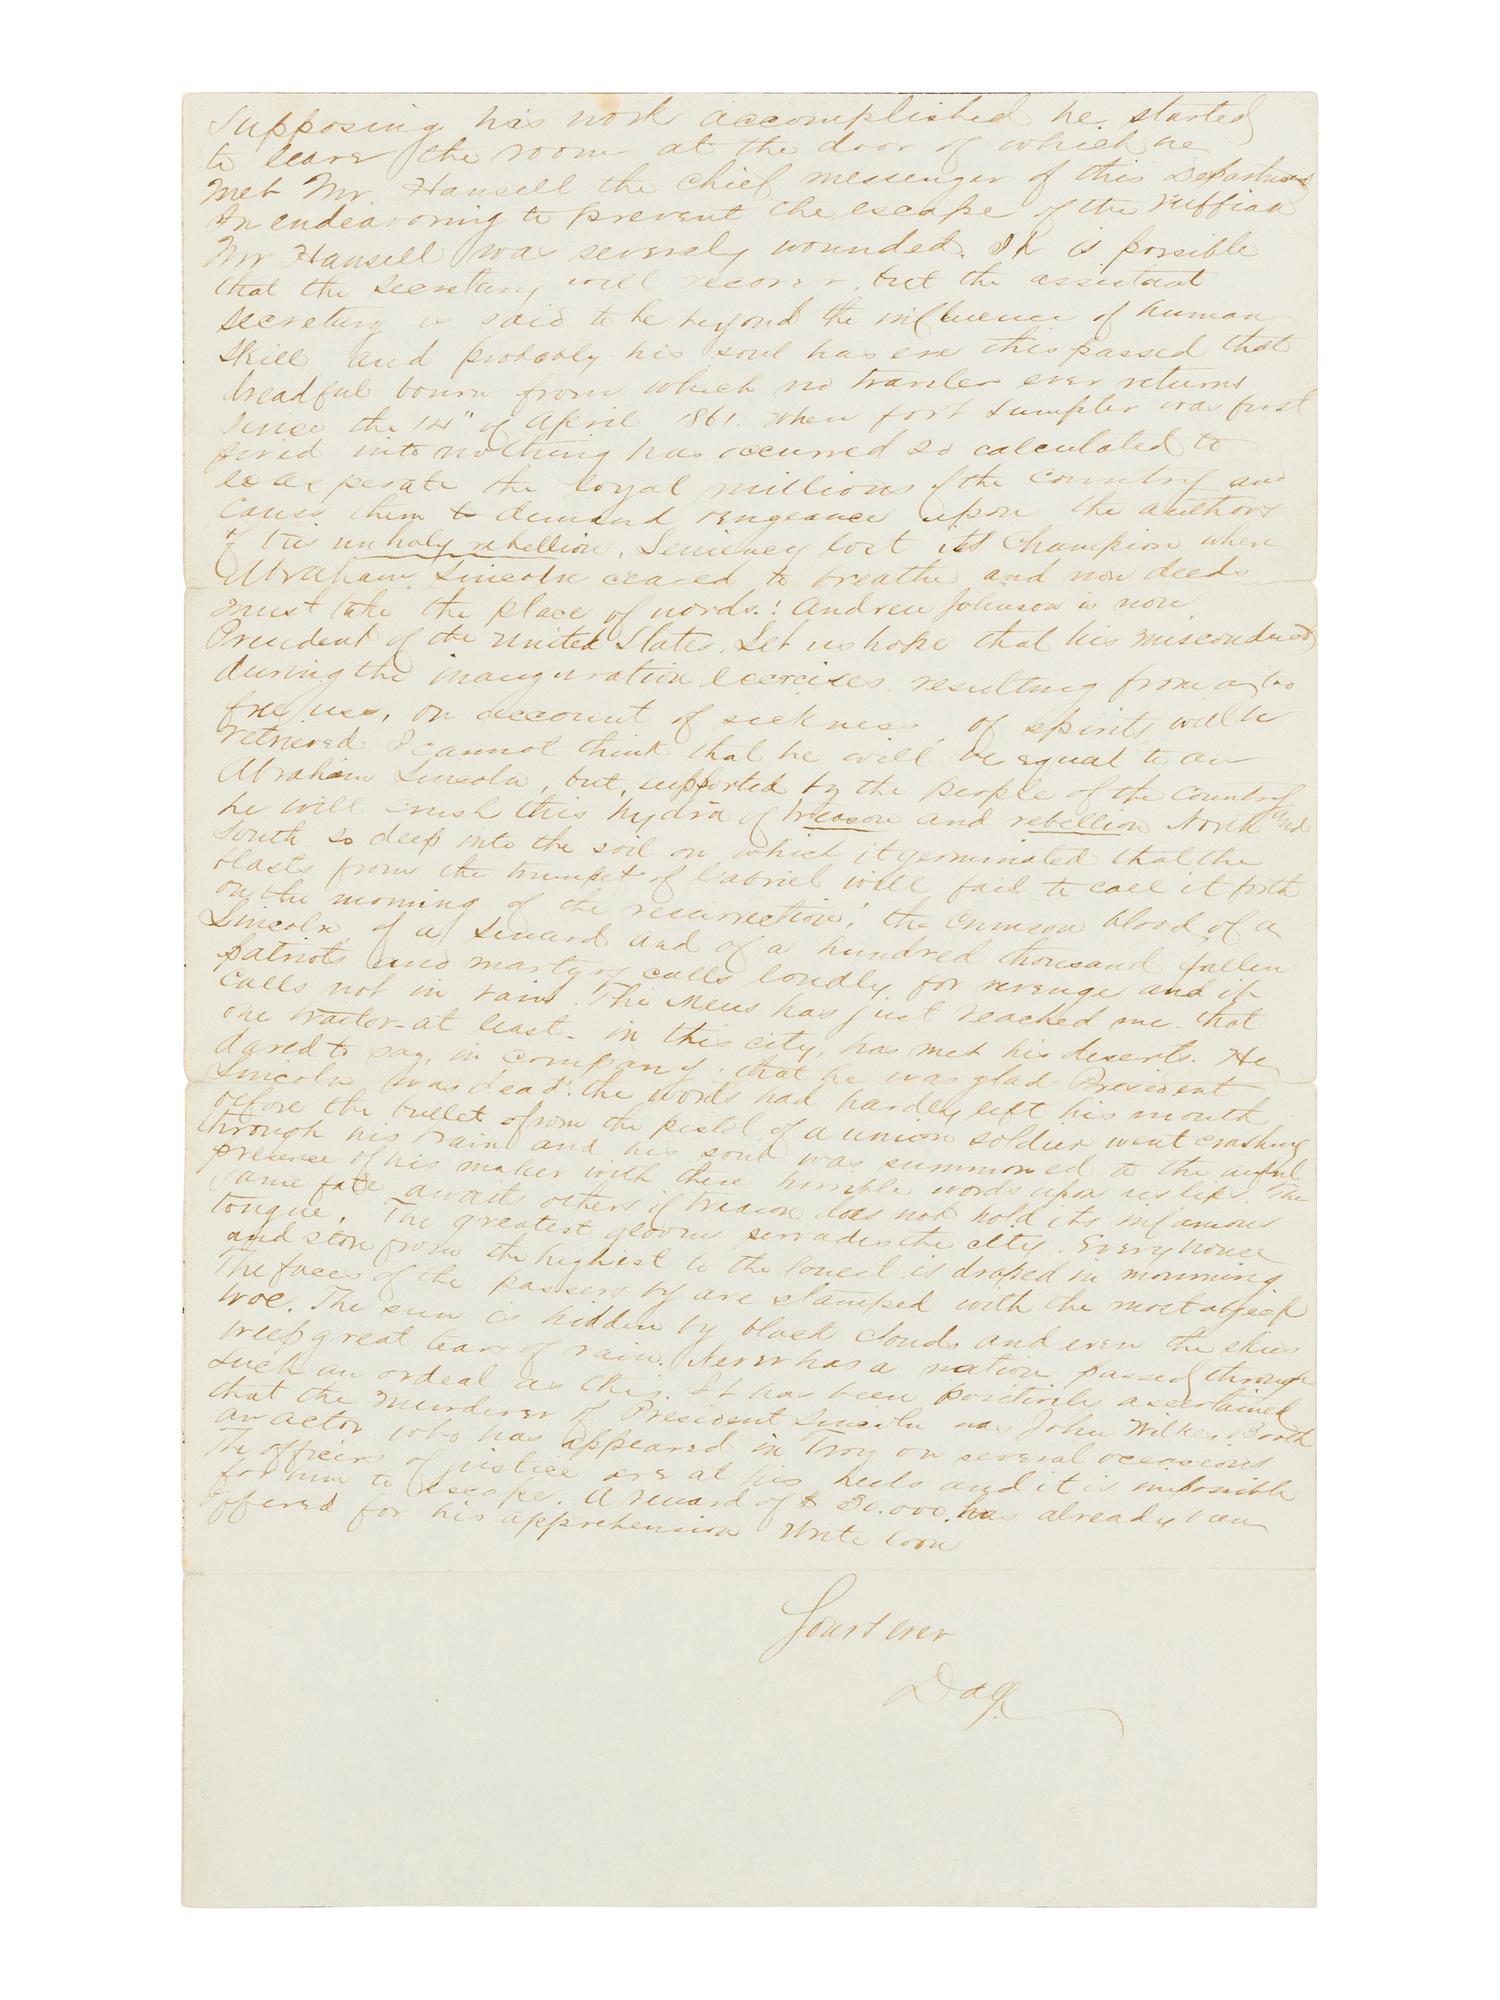 Supposing his work accomplished he started
to leave the room at the door of which he
met Mr. Hansell the chief messenger of this Department
In endeavoring to prevent the escape of the ruffian
Mr Hansell was severely wounded. It is possible
that the Secretary will recover, but the assistant
secretary is said to be beyond the influence of human
skill and probably his soul has ere this passed that
dreadful bourn from which no traveler ever returns
Since the 14" of April 1861. when fort Sumpter was first
fired into nothing has occurred so calculated to
exasperate the loyal millions of the country and
cause them to demand vengeance upon the authors
of this unholy rebellion. Leniency lost its Champion when
Abraham Lincoln ceased to breathe and now deeds
must take the place of words.! Andrew Johnson is now
President of the United States. Let us hope that his misconduct
during the inauguration exercises, resulting from a too
free use, on account of sickness, of spirits will be
retrieved I cannot think that he will be equal to an
Abraham Lincoln, but, supported by the people of the country
he will crush this hydra of treason and rebellion North and
South so deep into the soil on which it germinated that the
blasts from the trumpet of Gabriel will fail to call it forth
on the morning of the resurrection! the crimson blood of a
Lincoln, of a Seward and of a hundred thousand fallen
patriots and martyrs calls loudly for revenge and it
calls not in vain. The news has just reached me that
one traitor-at least- in this city, has met his deserts. He
dared to say, in company, that he was glad President
Lincoln was dead! the words had hardly left his mouth
before the bullet from the pistol of a union soldier went crashing
through his brain and his soul was summoned to the awful
presence of his maker with these horrible words upon his lips. The
same fate awaits others if treason does not hold its infamous
tongue. The greatest gloom pervades the city. Every house
and store from the highest to the lowest is draped in mourning
The faces of the passers by are stamped with the most abject
woe. The sun is hidden by black clouds and even the skies
weep great tears of rain. Never has a nation passed through
such an ordeal as this. It has been positively ascertained
that the murderer of President Lincoln was John Wilkes Booth
an actor who has appeared in Troy on several occasions
The officers of justice are at his heels and it is impossible
for him to escape. A reward of $ 30.000. has already been
offered for his apprehension Write soon
Yours ever
Dag.